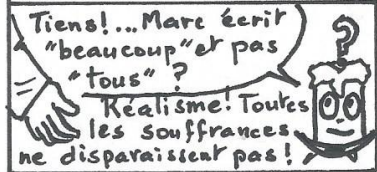 Tiens!...Marc écrit
"beaucoup" et pas
"tous" ?
Réalisme! Toutes
les souffrances
ne disparaissent pas!
?